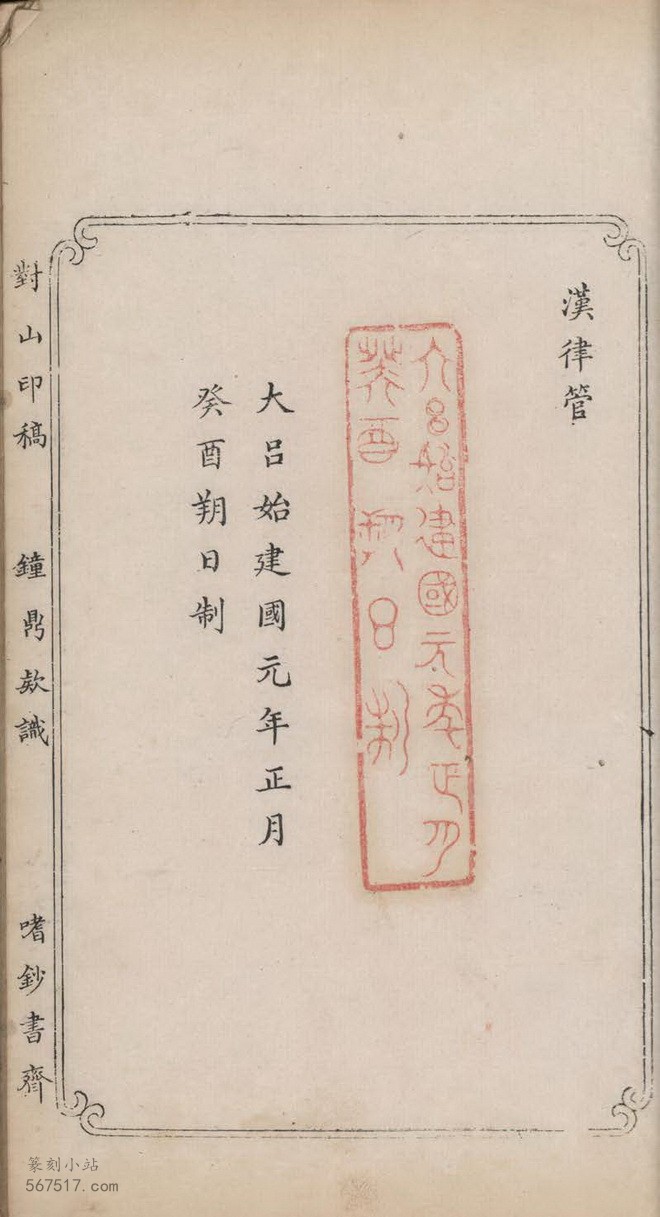 漢律管
大呂始建國元年正月
癸酉朔日制
大呂始建國元年正月
癸酉朔日制
對山印稿 鐘鼎欵識 嗜鈔書齊
篆刻小站
567517.com